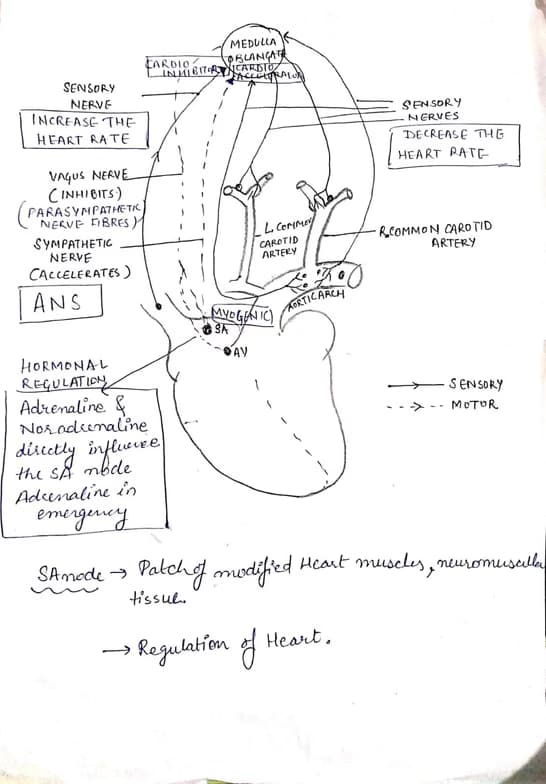 MEDULLA
OBLANGATE
CARDIO
INHIBITOR
CARDIO
ACCELERATOR
SENSORY
NERVE
INCREASE THE
HEART RATE
SENSORY
NERVES
DECREASE THE
HEART RATE
VAGUS NERVE
(INHIBITS)
(PARASYMPATHETIC
NERVE FIBRES)
SYMPATHETIC
NERVE
(ACCELERATES)
ANS
L. COMMON
CAROTID
ARTERY
R.COMMON CAROTID
ARTERY
AORTIC ARCH
(MYOGENIC)
SA
AV
HORMONAL
REGULATION
Adrenaline &
Noradrenaline
directly influence
the SA node
Adrenaline in
emergency
SENSORY
MOTOR
SA node → Patch of modified Heart muscles, neuromuscular
tissue.
→ Regulation of Heart.